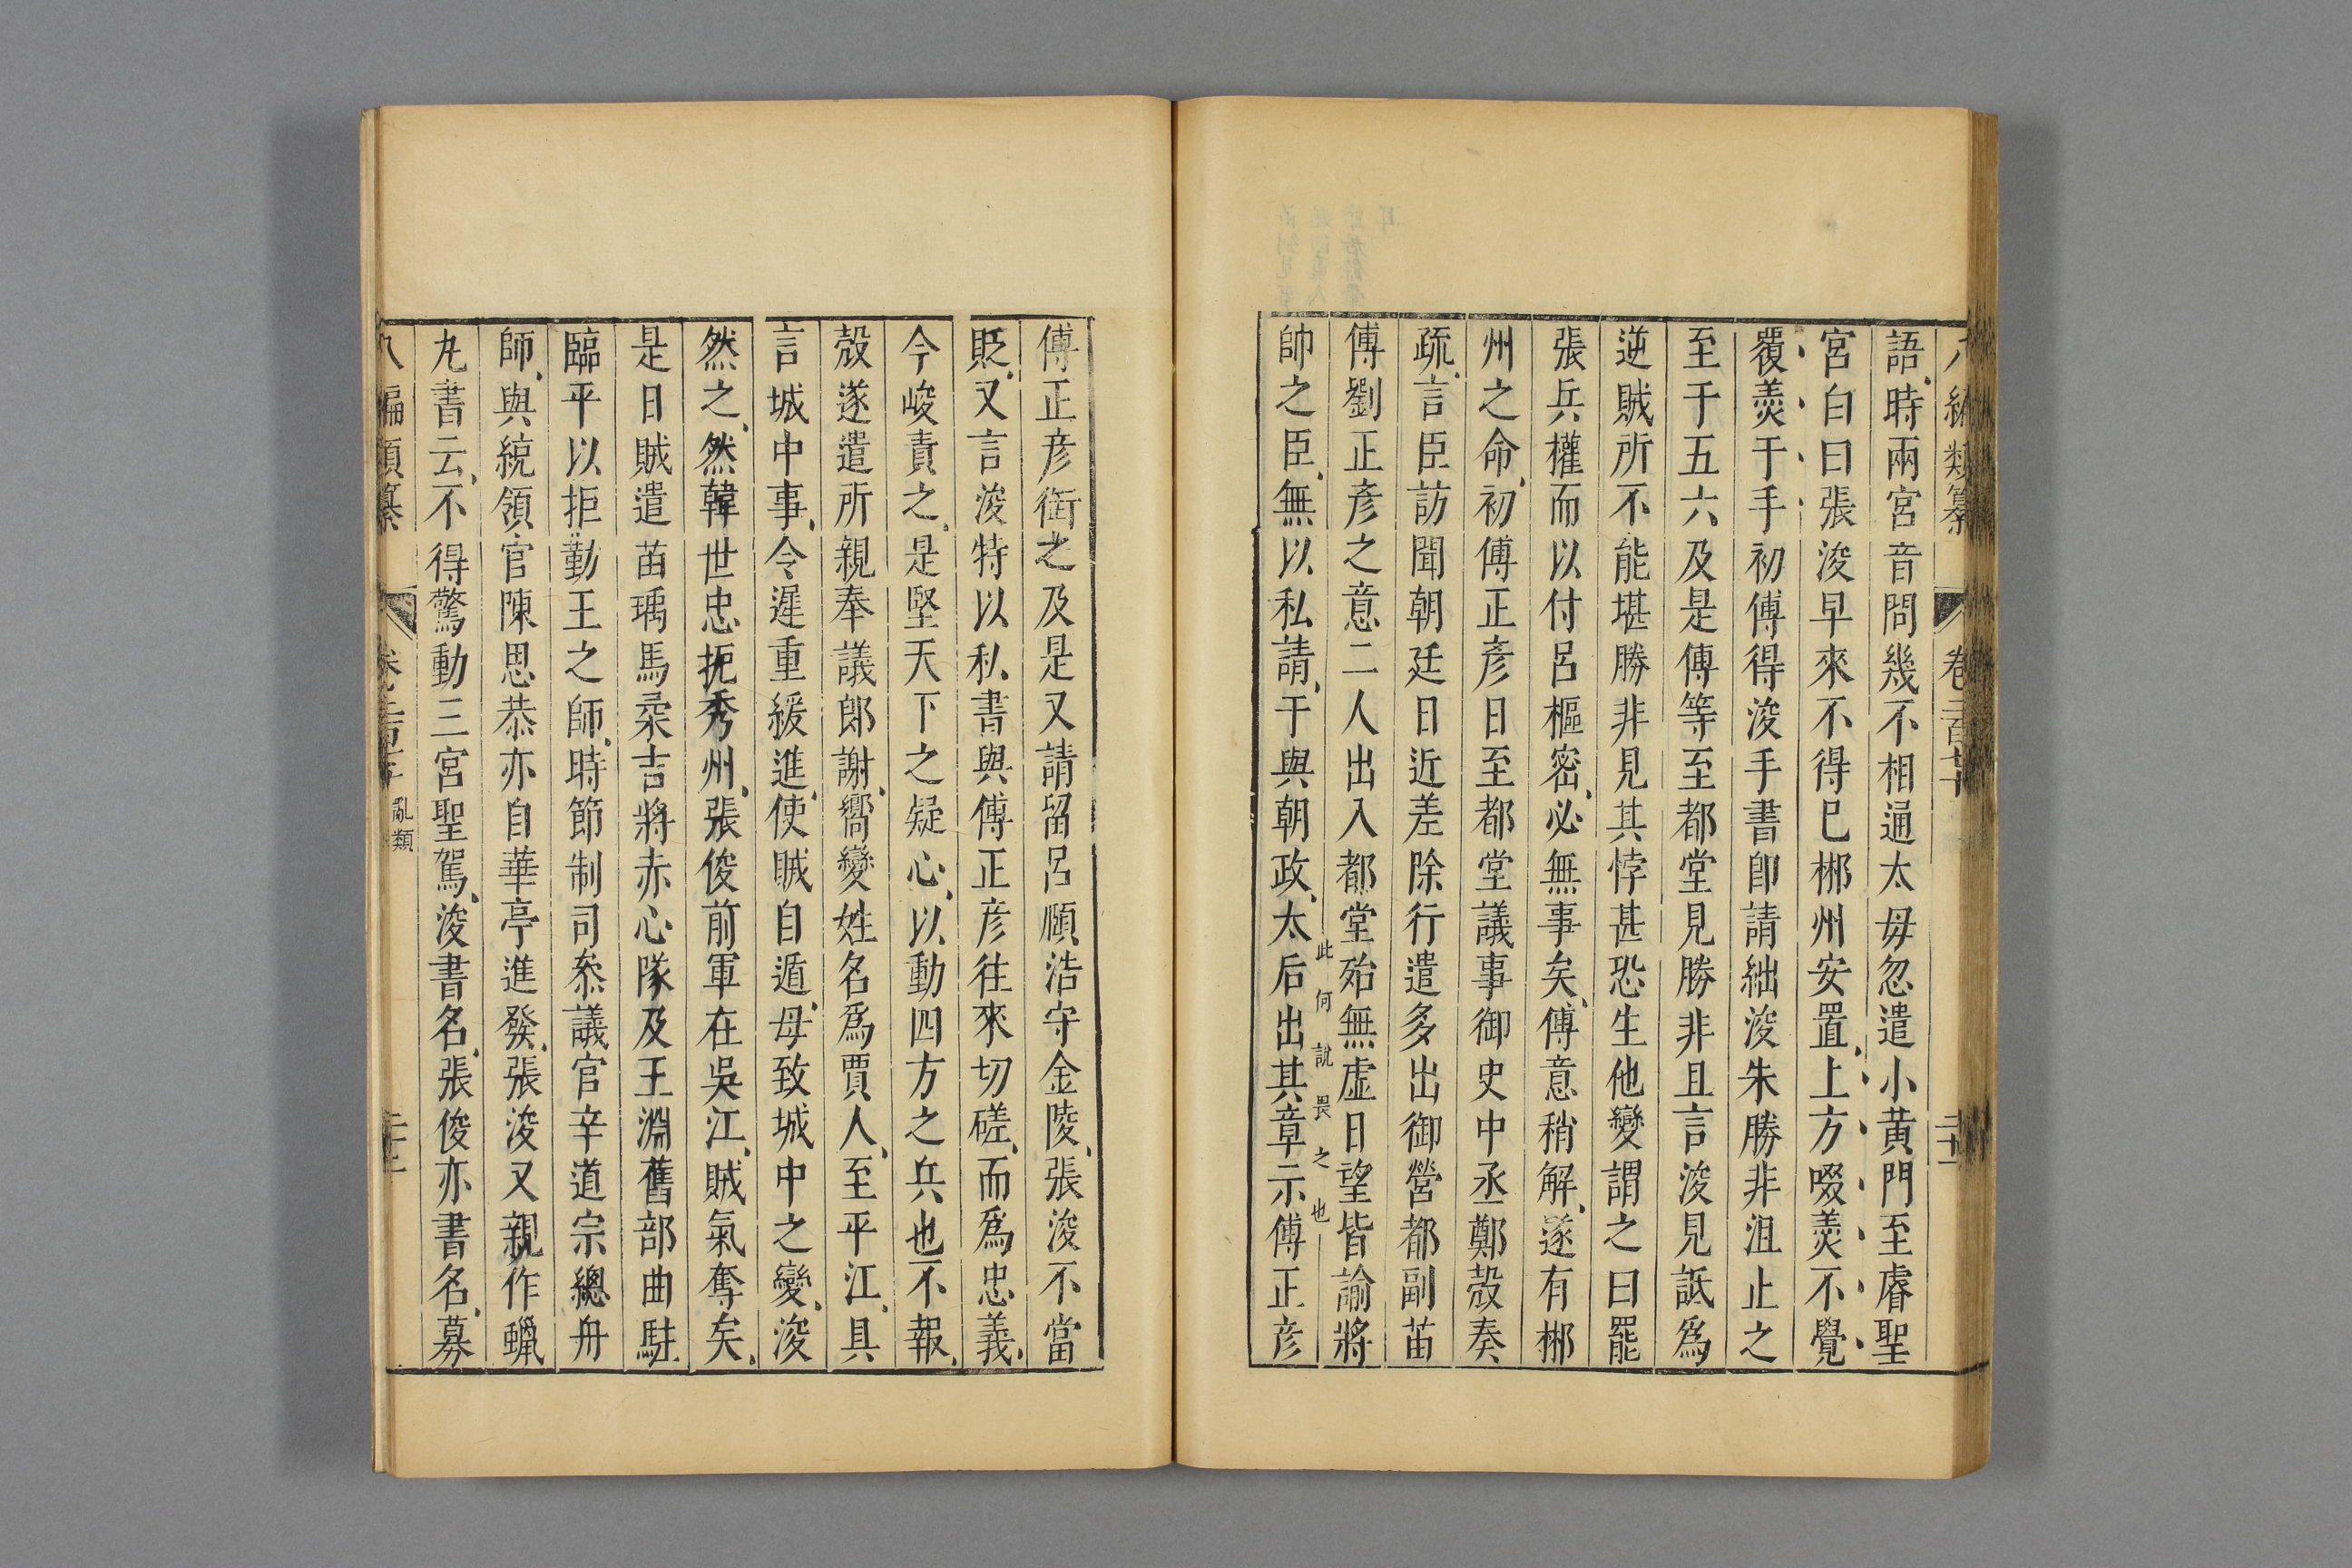 語時兩宮音問幾不相通太毋忽遣小黃門至睿聖
宮白曰張浚早來不得巳郴州安置上方啜羮不覺
覆羮于手初傅得浚手書即請絀浚朱勝非沮止之
至于五六及是傅等至都堂見勝非且言浚見詆爲
逆賊所不能堪勝非見其悖甚恐生他變謂之曰罷
張兵權而以付呂樞密必無事矣傅意稍解遂有郴
州之命初傅正彥日至都堂議事御史中丞鄭瑴奏
疏言臣訪聞朝廷日近差除行遣多出御營都副苗
傅劉正彥之意二人出入都堂殆無虛日望皆諭將
此何說畏之也
帥之臣無以私請干與朝政太后出其章示傅正彥
傅正彥銜之及是又請留呂頤浩守金陵張浚不當
貶又言浚特以私書與傅正彥往來切磋而爲忠義
今峻責之是堅天下之疑心以動四方之兵也不報
瑴遂遣所親奉議郎謝嚮變姓名爲賈人至平江具
言城中事令遲重緩進使賊自遁毋致城中之變浚
然之然韓世忠扼秀州張俊前軍在吳江賊氣奪矣
是日賊遣苗瑀馬柔吉將赤心隊及王淵舊部曲駐
臨平以拒勤王之師時節制司叅議官辛道宗總舟
師與統領官陳思恭亦自華亭進發張浚又親作蠟
丸書云不得驚動三宮聖駕浚書名張俊亦書名募
八編類纂
亂類